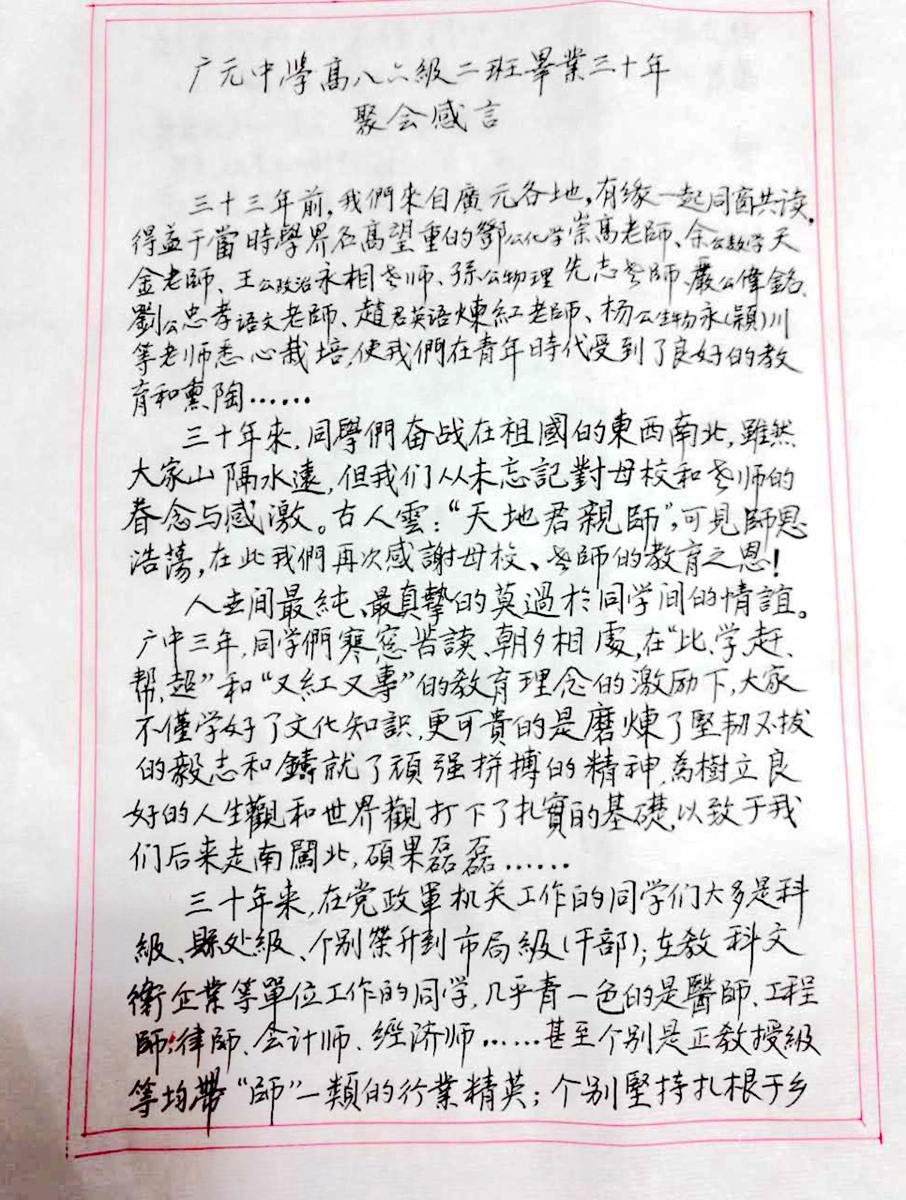 广元中學高八六級二班畢業三十年
聚会感言
三十三年前,我們來自廣元各地,有缘一起同窗共读,
得益于當時學界名高望重的鄧公化学崇禹老師、余公数学天
金老師、王公政治永相老师、孫公物理先志老師、嚴公偉銘、
劉公忠孝语文老師、趙君英语煉紅老師、杨公生物永(穎)川
等老师悉心栽培,使我們在青年時代受到了良好的教
育和熏陶……
三十年來,同學們奋战在祖國的東西南北,雖然
大家山隔水遠,但我们从未忘記對母校和老师的
眷念与感激。古人雲:“天地君親師”,可見師恩
浩蕩,在此我們再次感謝母校、老師的教育之恩!
人世间最純、最真摯的莫過於同学间的情誼。
广中三年,同学們寒窓苦读、朝夕相處,在“比、学、赶、
帮、超”和“又紅又專”的教育理念的激励下,大家
不僅学好了文化知識,更可貴的是磨煉了堅韧不拔
的毅志和鑄就了頑强拼搏的精神,為樹立良
好的人生觀和世界觀打下了扎實的基礎,以致于我
们后来走南闖北,碩果磊磊……
三十年来,在党政軍机关工作的同学们大多是科
級、縣处級、个别榮升到市局級(干部);在教科文
衛企業等單位工作的同学,几乎青一色的是醫師、工程
師、律師、会计师、經济师……甚至个别是正教授級
等均帶“師”一類的行業精英;个别堅持扎根于乡